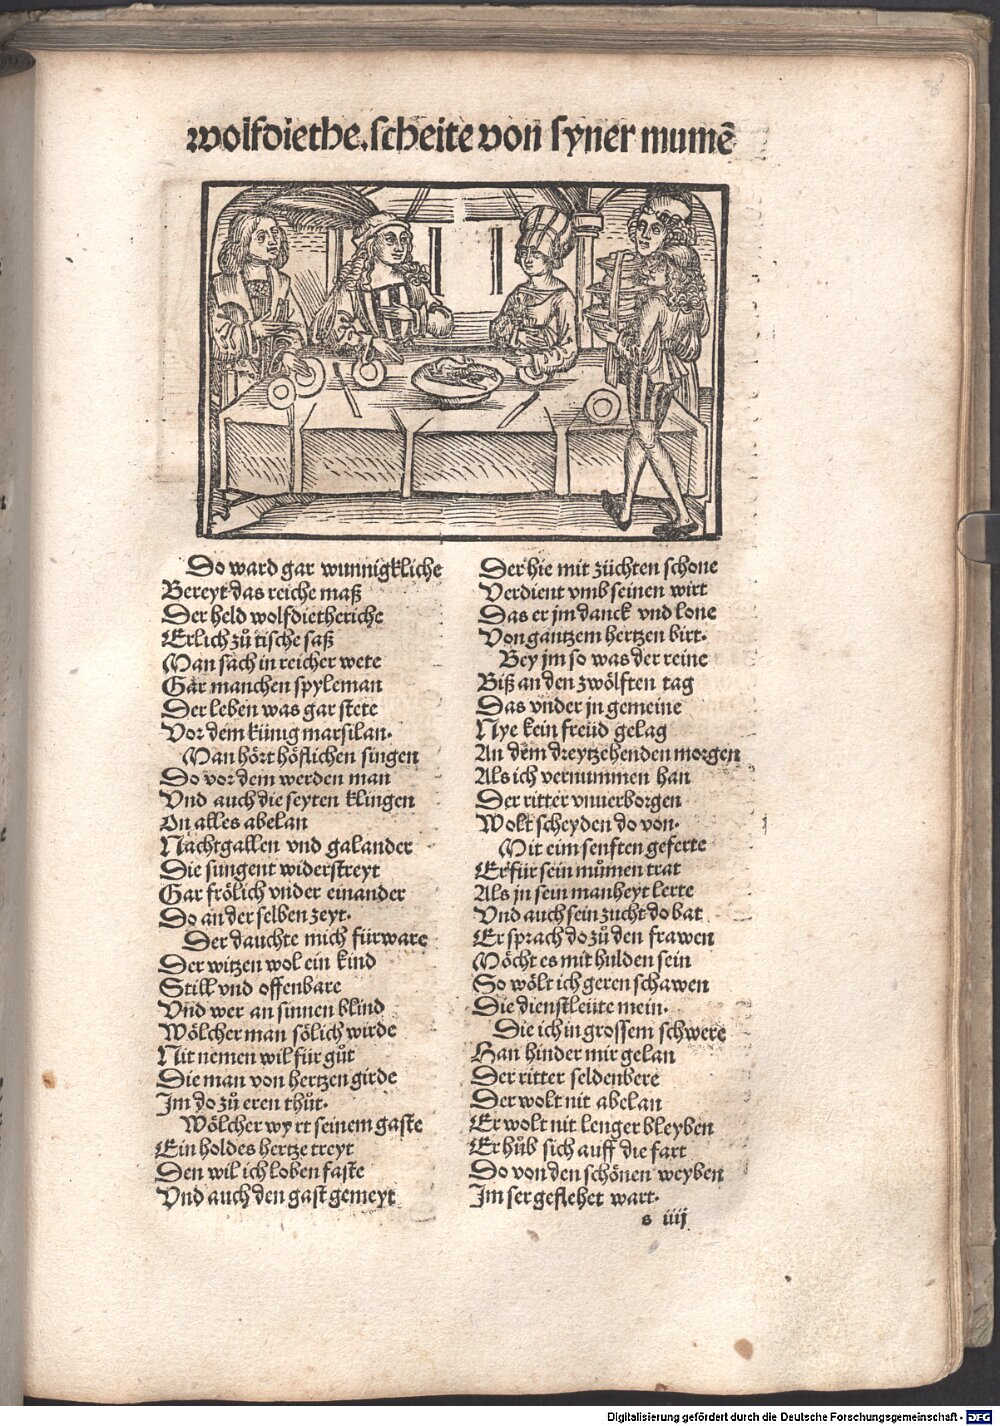 wolfdiethe.scheite von syner mumē
Do ward gar wunnigkliche
Bereyt das reiche maß
Der held wolfdietheriche
Erlich zů tische saß
Man sach in reicher wete
Gar manchen spyleman
Der leben was gar stete
Vor dem künig marsilan.
Man hört höflichen singen
Do vor dem werden man
Vnd auch die seyten klingen
On alles abelan
Nachtgallen vnd galander
Die sungent widerstreyt
Gar frölich vnder einander
So an der selben zeyt.
Der dauchte mich fürware
Der witzen wol ein kind
Still vnd offenbare
Vnd wer an sinnen blind
Wölcher man sölich wirde
Nit nemen wil für gůt
Die man von hertzen girde
Im do zů eren thůt.
Wölcher wyrt seinem gaste
Ein holdes hertze treyt
Den wil ich loben faste
Vnd auch den gast gemeyt
Der hie mit züchten schone
Verdient vmb seinen wirt
Das er jm danck vnd lone
Von gantzem hertzen birt.
Bey jm so was der reine
Biß an den zwölften tag
Das vnder jn gemeine
Nye kein freüd gelag
An dem dreytzehenden morgen
Als ich vernummen han
Der ritter vnuerborgen
Wolt scheyden do von.
Mit eim senften geferte
Er für sein můmen trat
Als jn sein manheyt lerte
Vnd auch sein zucht do bat
Er sprach do zů den frawen
Möcht es mit hulden sein
So wölt ich geren schawen
Die dienstleüte mein.
Die ich in grossem schwere
Han hinder mir gelan
Der ritter seldenbere
Der wolt nit abelan
Er wolt nit lenger bleyben
Er hůb sich auff die fart
Do von den schönen weyben
Im ser geflehet wart.
s iiij
Digitalisierung gefördert durch die Deutsche Forschungsgemeinschaft - DFG